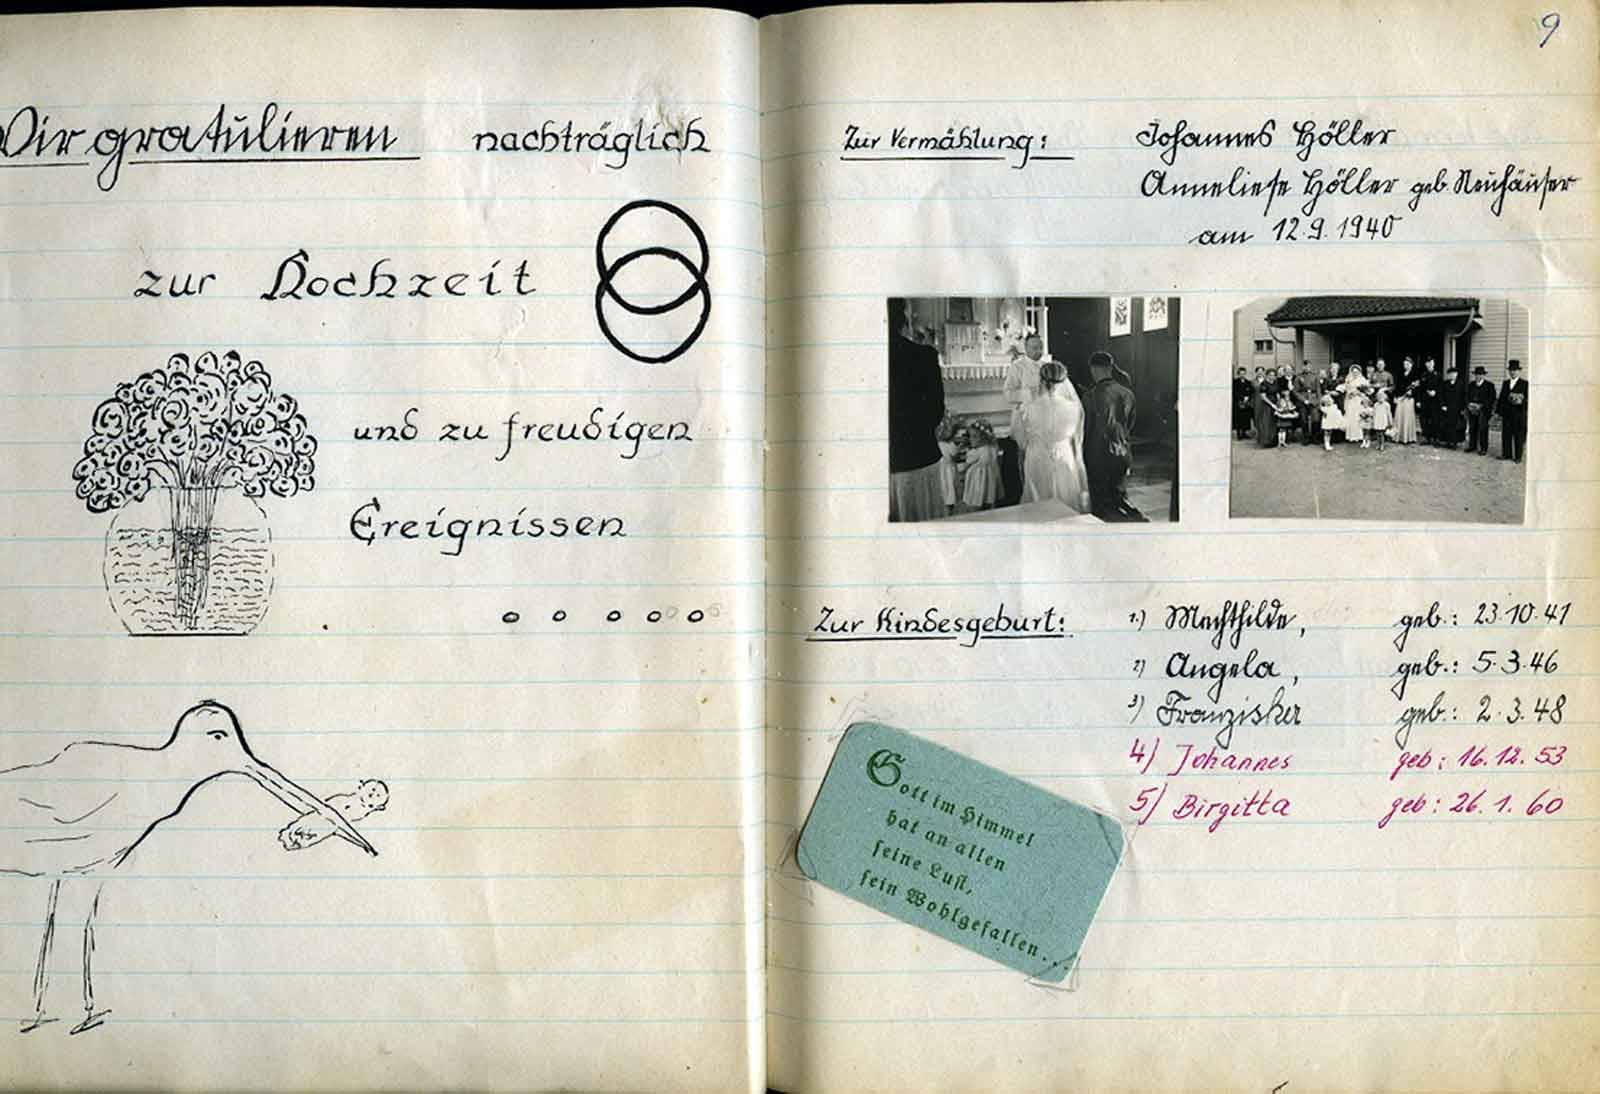 Wir gratulieren nachträglich
zur Hochzeit
und zu freudigen
Ereignissen
9
Zur Vermählung: Johannes Höller
Anneliese Höller geb. Neuhäuser
am 12.9.1940
Zur Kindesgeburt: 1.) Mechthilde, geb.: 23.10.41
2) Angela, geb.: 5.3.46
3) Franzisker geb.: 2.3.48
4) Johannes geb: 16.12.53
5) Birgitta geb: 26.1.60
Gott im Himmel
hat an allen
seine Lust,
sein Wohlgefallen...